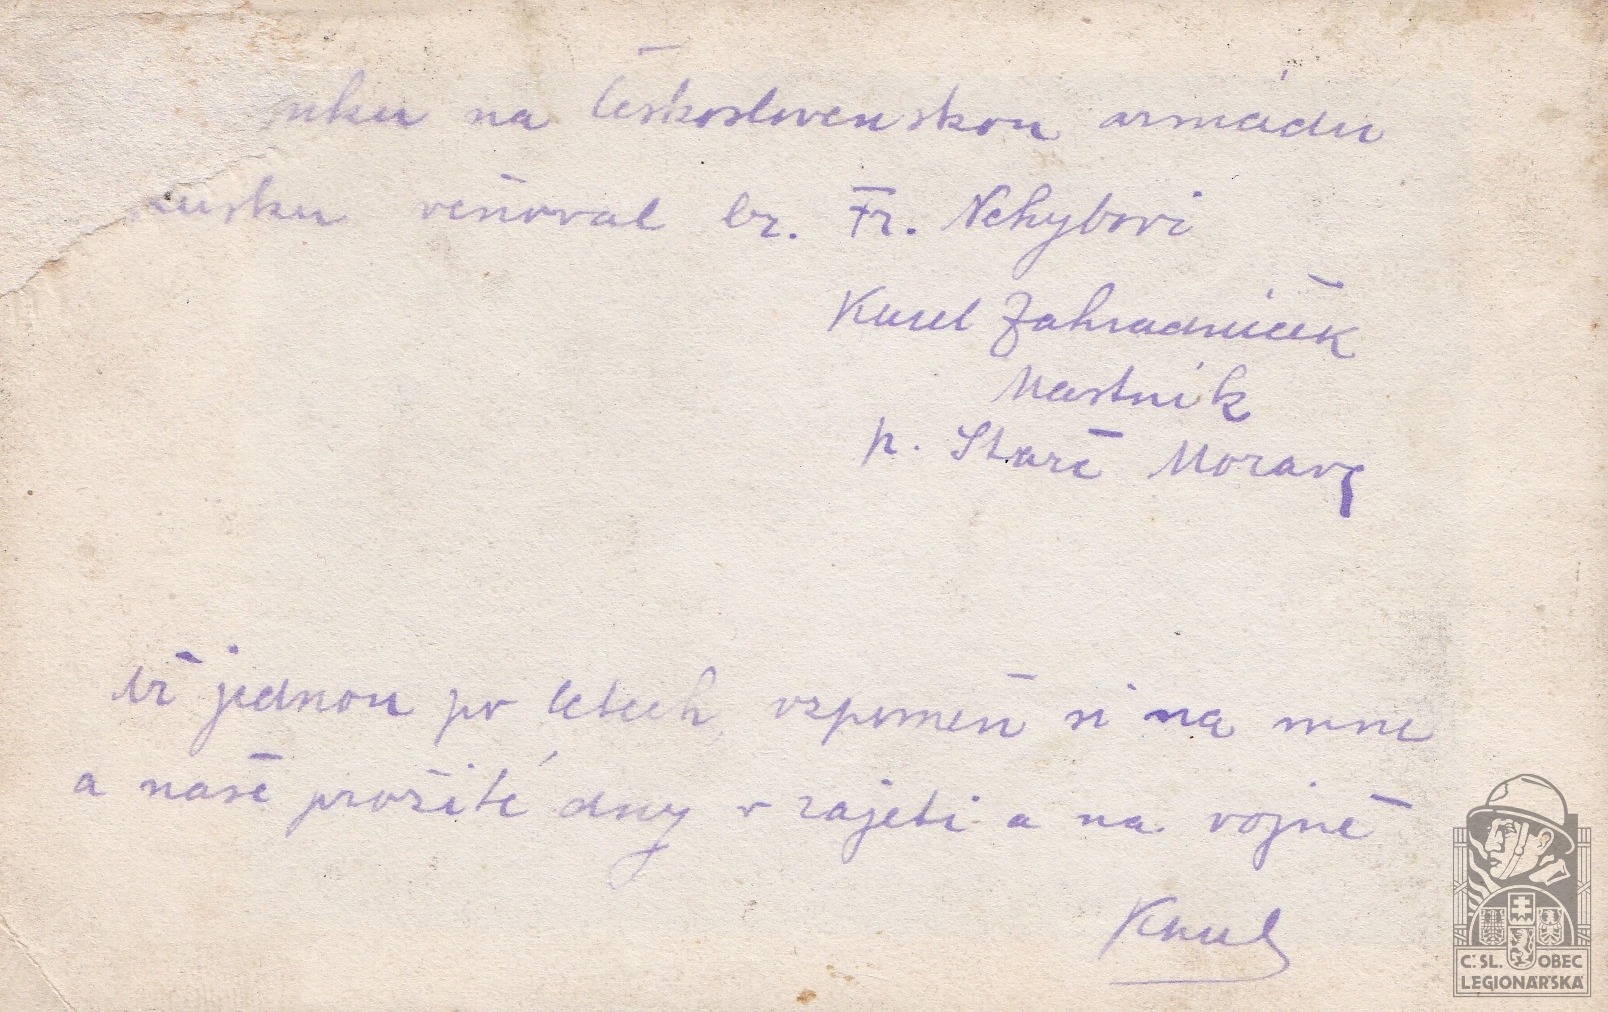 nku na Československou armádu
Rusku věnoval br. Fr. Nehybovi
Karel Zahradníček
Mastník
p. Staré Moravy
Až jednou po letech vzpomeň si na mne
a naše prožité dny v zajetí a na vojně
Karel
Č. SL. OBEC
LEGIONÁŘSKÁ